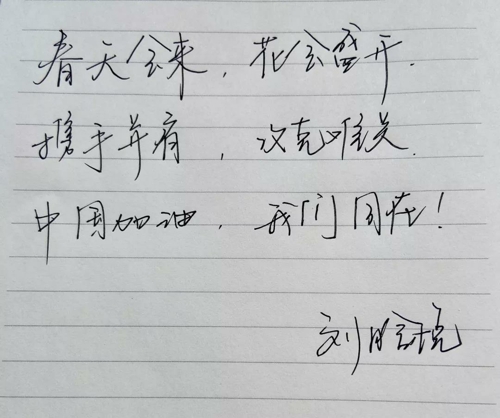 春天会来，花会盛开.
携手并肩，攻克难关.
中国加油，我们同在！
刘晗